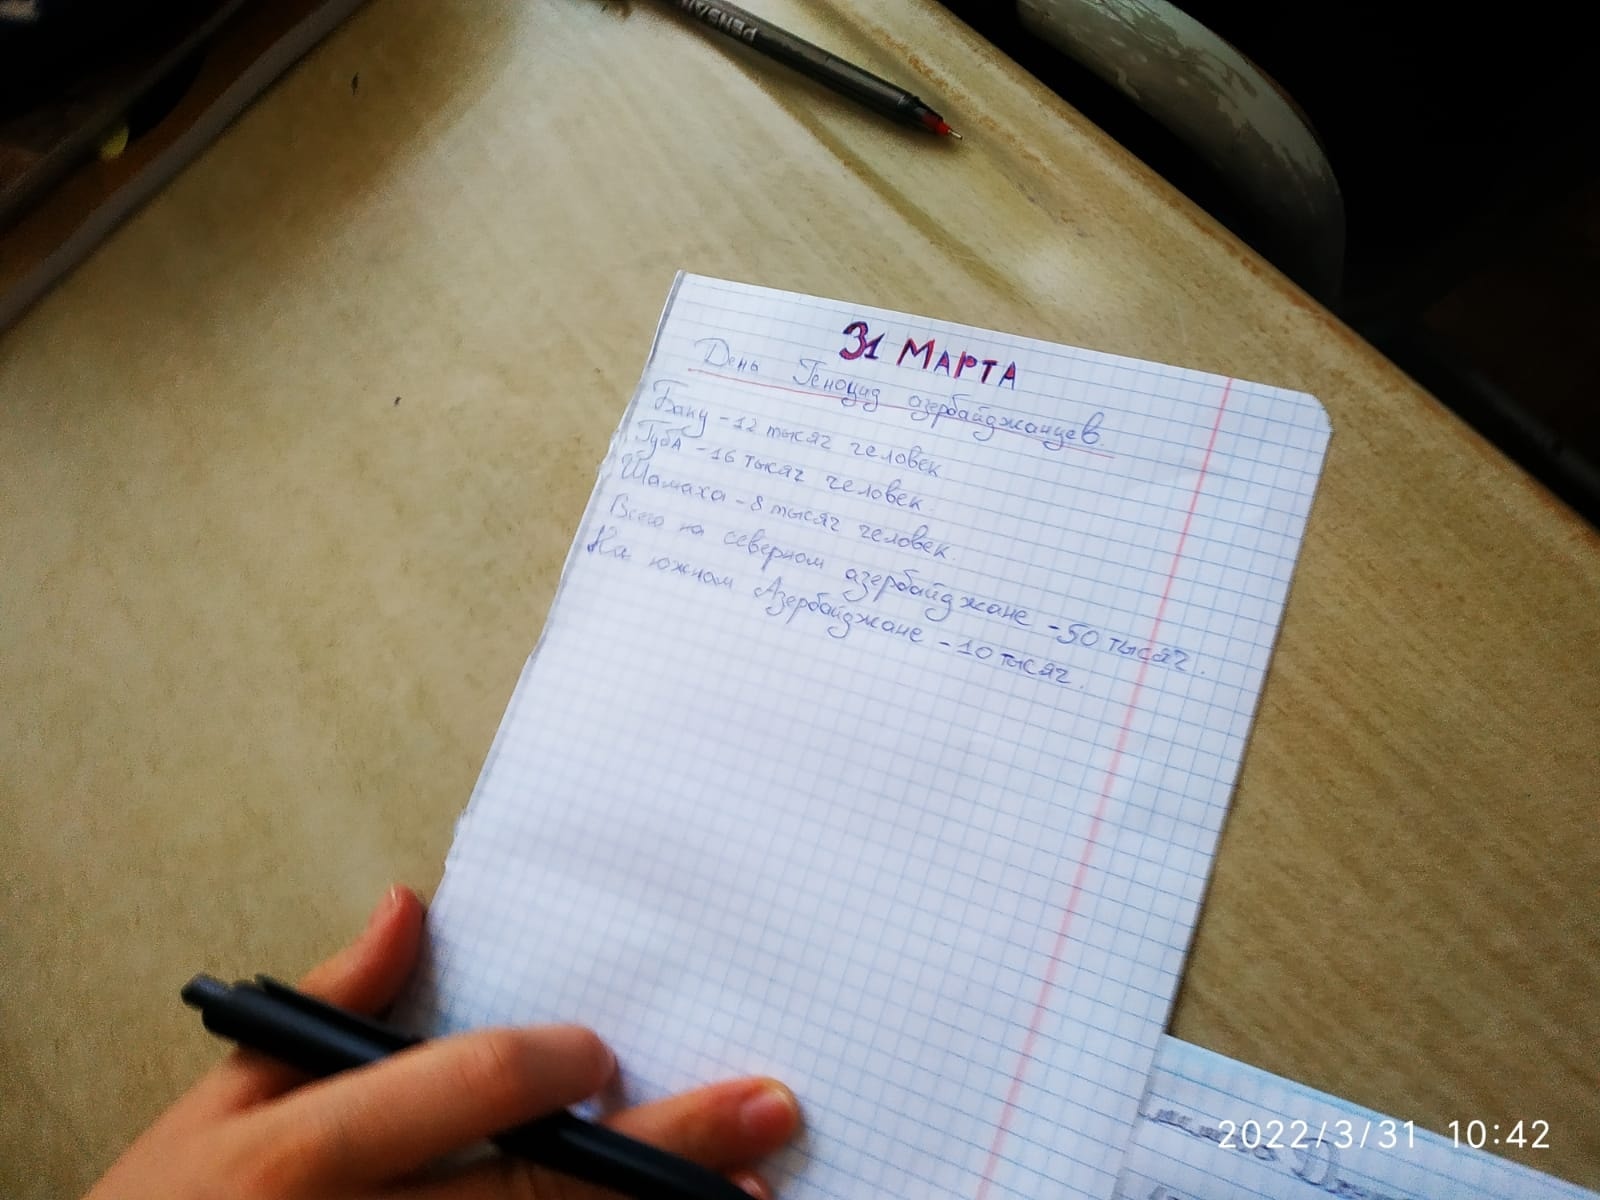 PENSAN
31 МАРТА
День Геноцид азербайджанцев.
Баку - 12 тысяч человек
Губа - 16 тысяч человек.
Шамаха - 8 тысяч человек.
Всего на северном азербайджане - 50 тысяч.
На южном Азербайджане - 10 тысяч.
2022/3/31 10:42